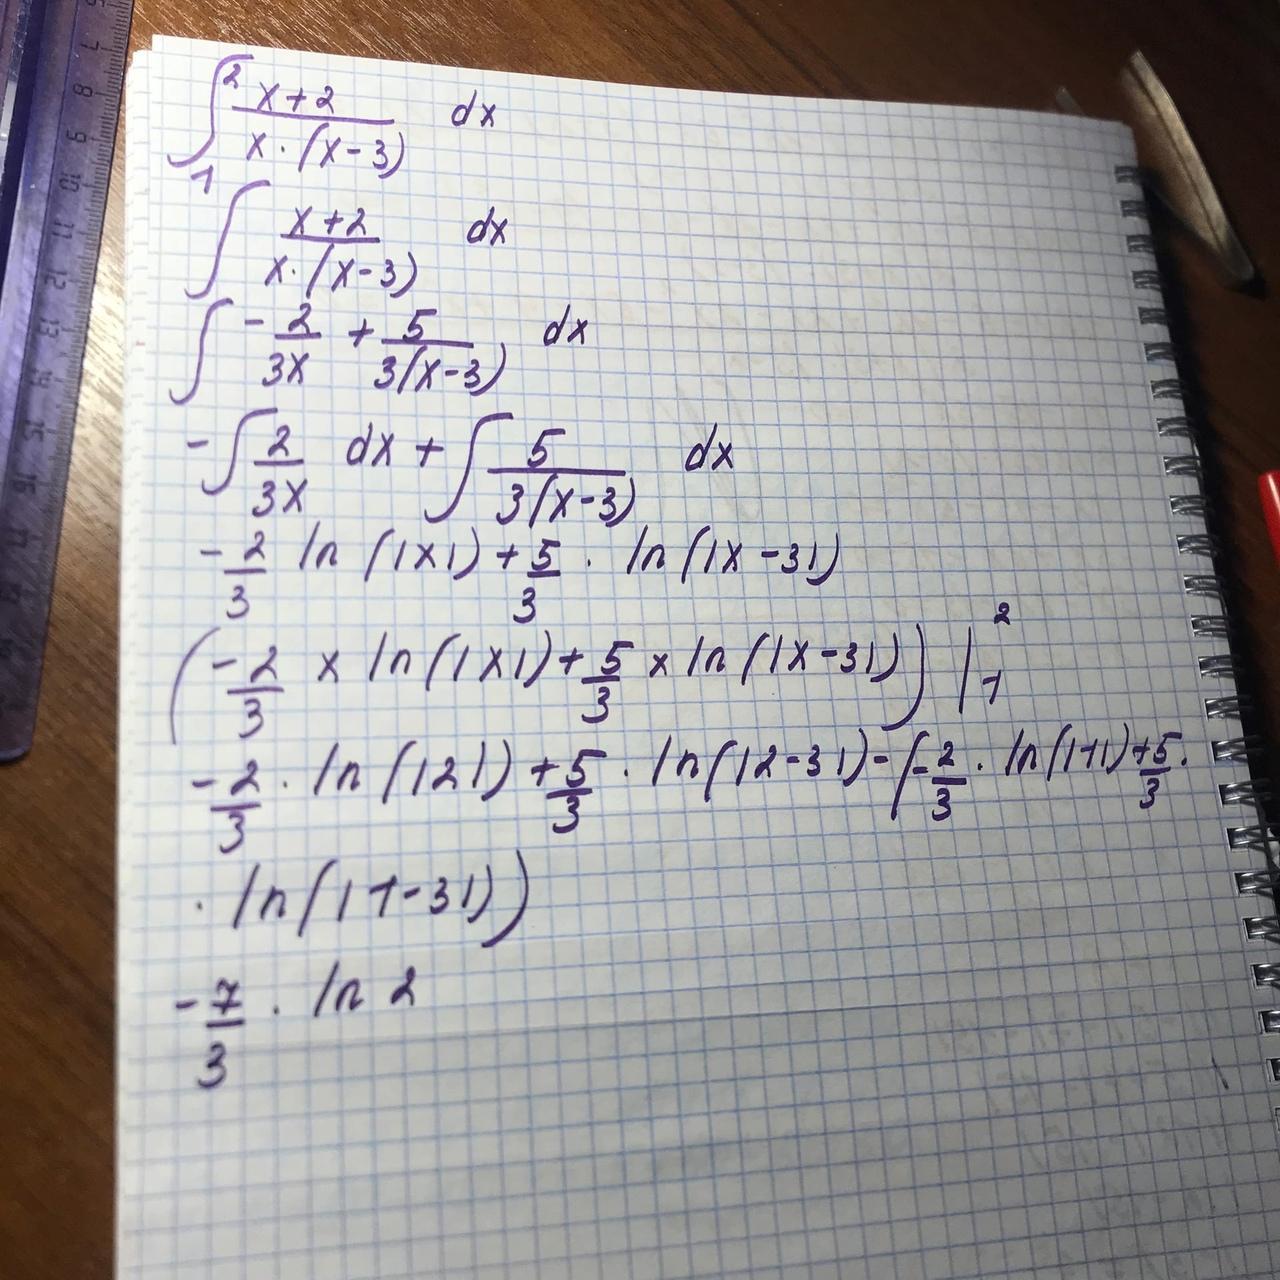 ∫₁² (x+2)/(x·(x-3)) dx
∫ (x+2)/(x·(x-3)) dx
∫ -2/(3x) + 5/(3(x-3)) dx
-∫ 2/(3x) dx + ∫ 5/(3(x-3)) dx
-2/3 ln(|x|) + 5/3 · ln(|x-3|)
(-2/3 × ln(|x|) + 5/3 × ln(|x-3|)) |₁²
-2/3 · ln(|2|) + 5/3 · ln(|2-3|) - (-2/3 · ln(|1|) + 5/3 ·
· ln(|1-3|))
-7/3 · ln 2
7
8
9
10
11
12
13
14
15
16
17